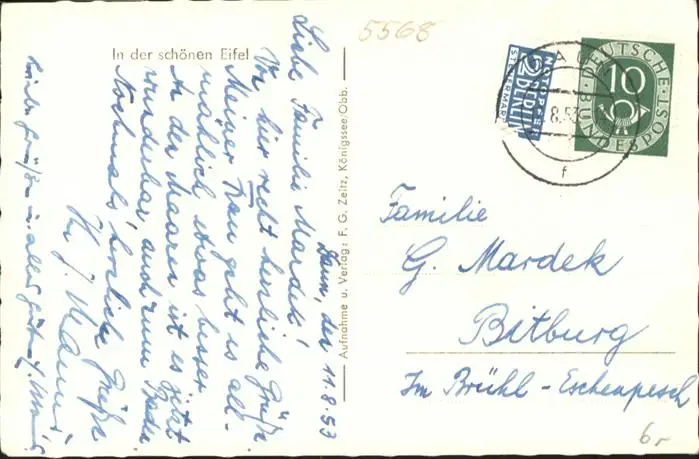 In der schönen Eifel
5568
Daun, den 11.8.53
Liebe Familie Mardek!
Von hier recht herzliche Grüße.
Meiner Frau geht es all-
mählich etwas besser.
In den Maaren ist es jetzt
wunderbar, auch zum Baden.
Nochmals, herzliche Grüße
Ihr J.
Aufnahme u. Verlag: F. G. Zeitz, Königssee/Obb.
NOTOPFER
2 BERLIN
STEUERMARKE
DAUN
8.53
f
DEUTSCHE BUNDESPOST
10
Familie
G. Mardek
Bitburg
Im Brühl - Eschenpesch
6,-